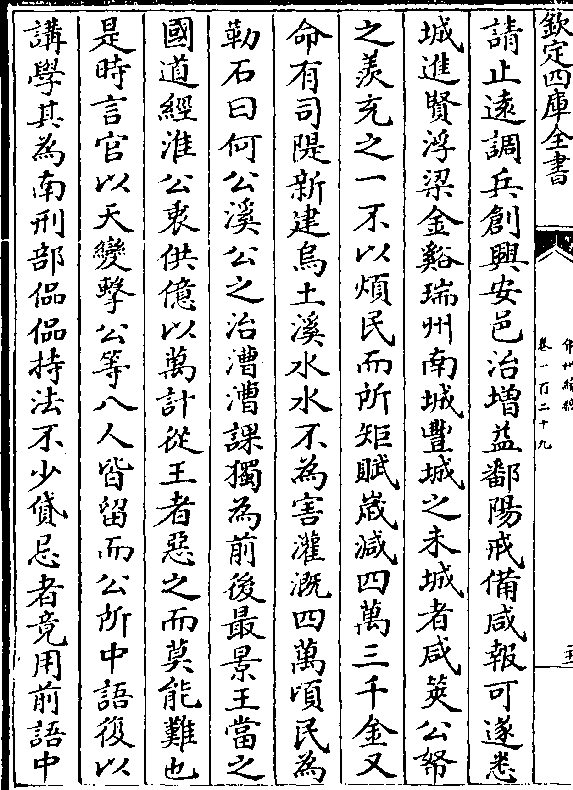 欽定四庫全書
卷一百二十九
請止遠調兵創興安邑治増益鄱陽戒備咸報可遂悉
城進賢浮梁金谿瑞州南城豐城之未城者咸筴公帑
之羨充之一不以煩民而所矩賦嵗減四萬三千金又
命有司隄新建烏土溪水水不為害灌溉四萬頃民為
勒石曰何公溪公之治漕漕課獨為前後最景王當之
國道經淮公衷供億以萬計從王者惡之而莫能難也
是時言官以天變擊公等八人皆留而公所中語復以
講學其為南刑部侃侃持法不少貸忌者竟用前語中